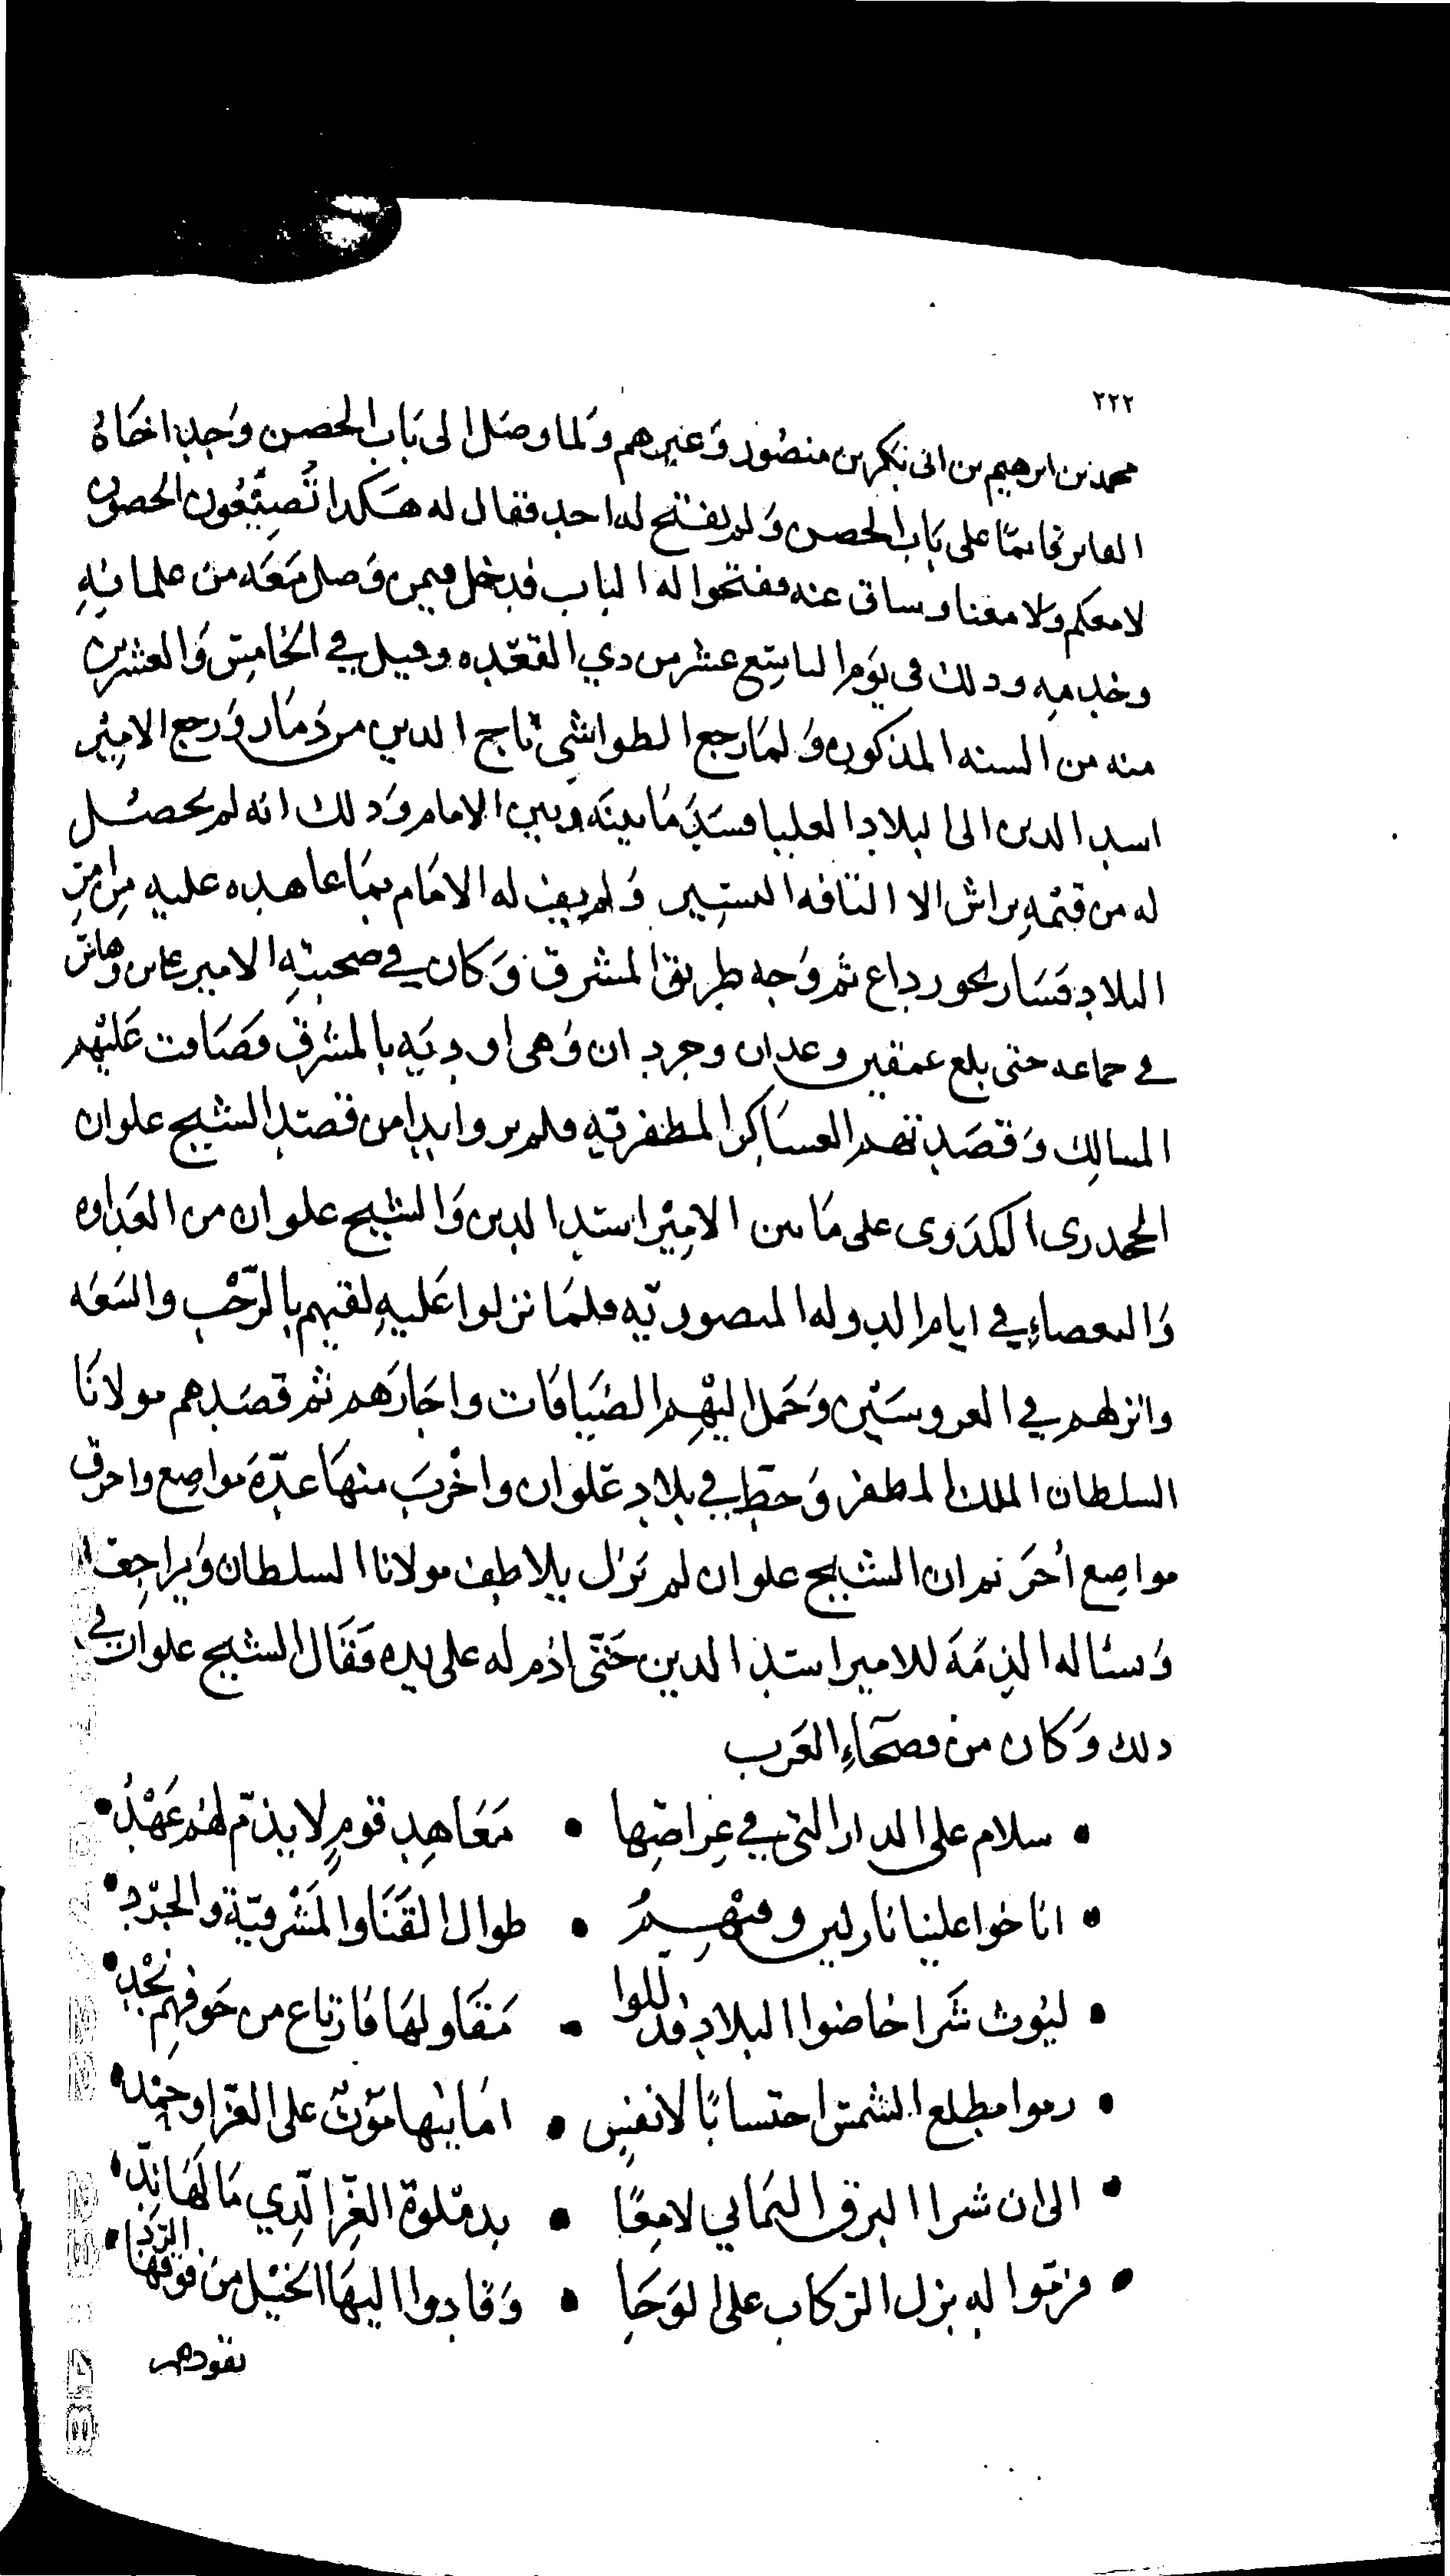 ٢٢٢
محمد بن ابرهيم بن ابى بكر بن منصور وغيرهم ولما وصل الى باب الحصن وجد اخاه
الفايز قايمًا على باب الحصن ولم يفتح له احد فقال له هكذا تضيّعون الحصون
لا معكم ولا معنا وساق عنه ففتحوا له الباب فدخل فيمن وصل معه من غلمانه
وخدمه وذلك فى يوم التاسع عشر من ذي القعده وقيل في الخامس والعشرين
منه من السنه المذكوره ولما رجع الطواشي تاج الدين من ذمار ورجع الامير
اسد الدين الى البلاد العليا فسد ما بينه وبين الامام وذلك انه لم يحصل
له من قيمه براش الا التافه اليسير ولم يف له الامام بما عاهده عليه من امر
البلاد فسار نحو رداع ثم وجه طريق المشرق وكان في صحبته الامير
في جماعه حتى بلغ عمقين وعدان وجردان وهى اوديه بالمشرق فضاقت عليهم
المسالك وقصدتهم العساكر المظفريه فلم يروا بدا من قصد الشيخ علوان
الجحدرى الكدوى على ما بين الامير اسد الدين والشيخ علوان من العداوه
والبغضاء في ايام الدوله المنصوريّه فلما نزلوا عليه لقيهم بالرّحب والسّعه
وانزلهم في العروسين وحمل اليهم الضيافات واجارهم ثم قصدهم مولانا
السلطان الملك المظفر وحط في بلاد علوان واخرب منها عدّة مواضع واحرق
مواضع أخر ثم ان الشيخ علوان لم يزل يلاطف مولانا السلطان ويراجعه
وسئاله الذمة للامير اسد الدين حتى اذم له على يده فقال الشيخ علوان في
ذلك وكان من فصحاء العرب
• سلام على الدار التي في عراصها • معاهد قوم لا يذم لهم عهد •
• اناخوا علينا نازلين وفيهم • طوال القنا والمشرفيّة والجرد •
• ليوث شرا خاضوا البلاد فذللوا • مقاولها فارتاع من خوفهم نجد •
• رموا مطلع الشمس احتسابًا لانفس • اما بها موت على العز او حمد •
• الى ان شرا البرق اليماني لامعًا • بدملوة العز الذي ما لها ند •
• فزمّوا له بزل الركاب على الوجا • وقادوا اليها الخيل من فوقها الزرد •
تقودهم